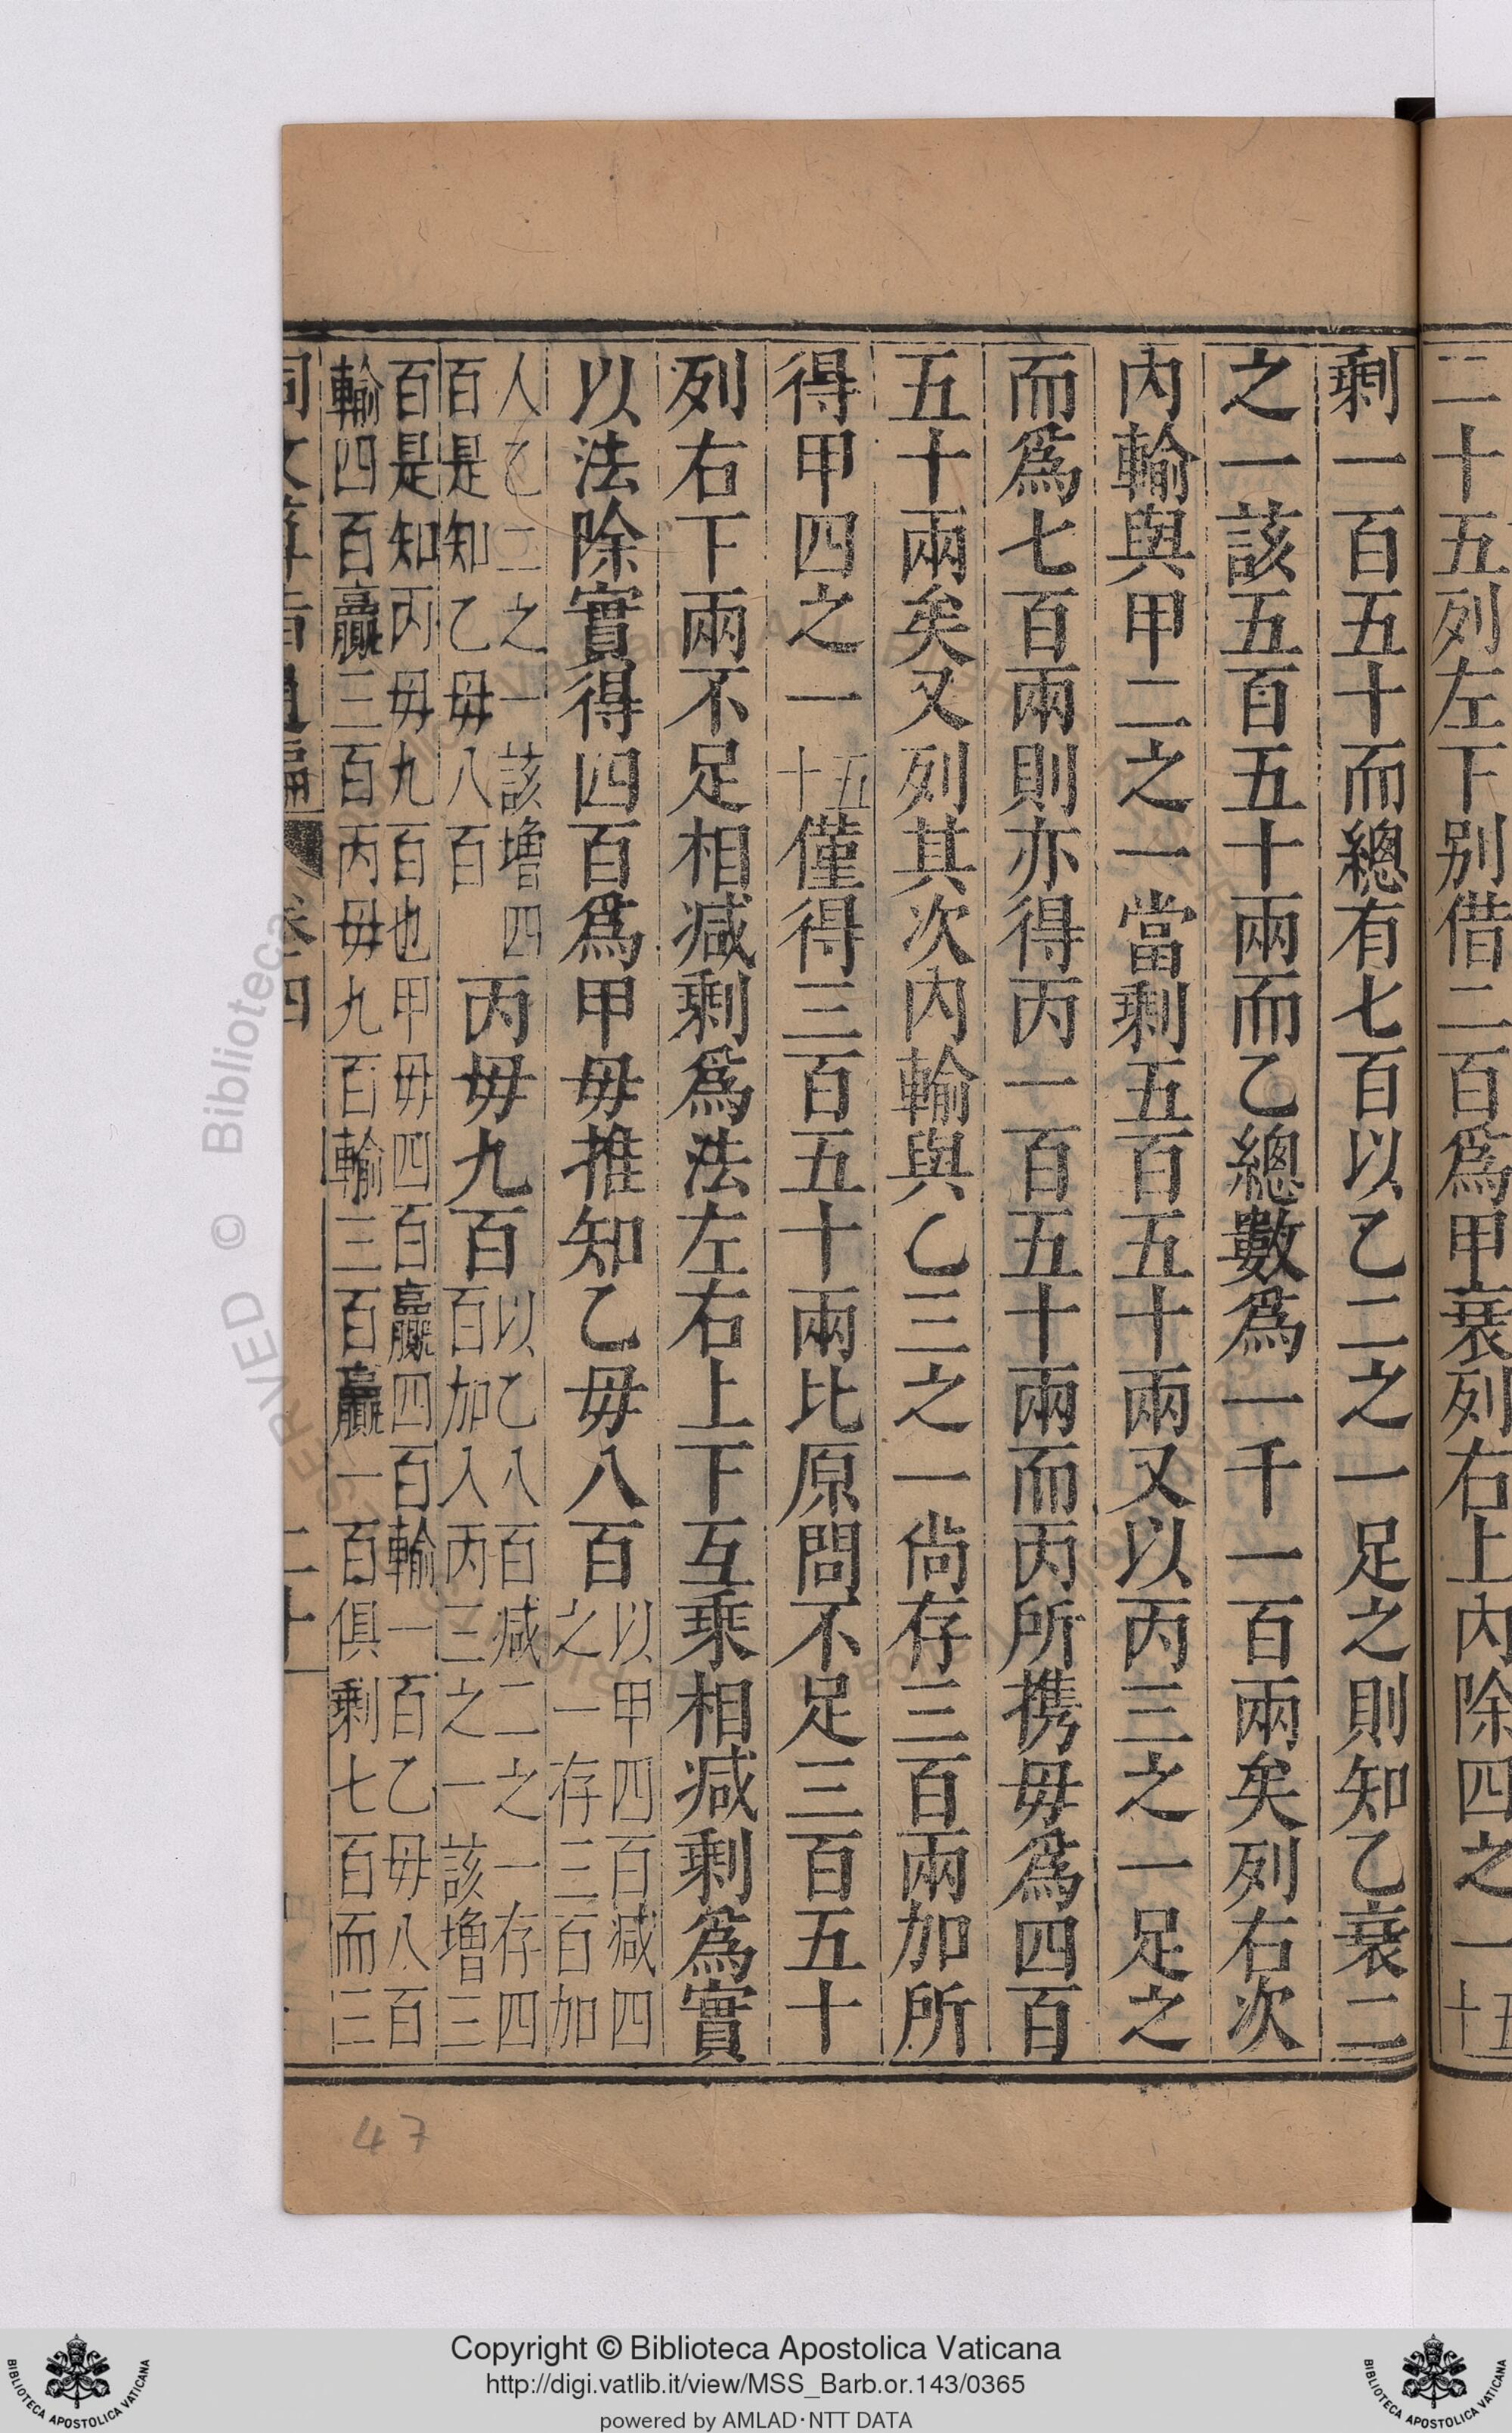 二十五列左下別借二百爲甲衰列右上內除四之一五十
剩一百五十而總有七百以乙二之一足之則知乙衰二
之一該五百五十兩而乙總數爲一千一百兩矣列右次
內輸與甲二之一當剩五百五十兩又以丙三之一足之
而爲七百兩則亦得丙一百五十兩而丙所携毋爲四百
五十兩矣又列其次內輸與乙三之一尙存三百兩加所
得甲四之一五十僅得三百五十兩比原問不足三百五十
列右下兩不足相减剩爲法左右上下互乘相减剩爲實
以法除實得四百爲甲毋推知乙毋八百以甲四百减四之一存三百加
人乙二之一該增四百是知乙毋八百丙毋九百以乙八百减二之一存四百加入丙三之一該增三
百是知丙毋九百也甲毋四百贏四百輸一百乙毋八百
輸四百贏三百丙毋九百輸三百贏一百俱剩七百而三
同文算指通編 卷四 二十一
47
© Biblioteca
Copyright © Biblioteca Apostolica Vaticana
http://digi.vatlib.it/view/MSS_Barb.or.143/0365
powered by AMLAD·NTT DATA
BIBLIOTECA APOSTOLICA VATICANA
BIBLIOTECA APOSTOLICA VATICANA